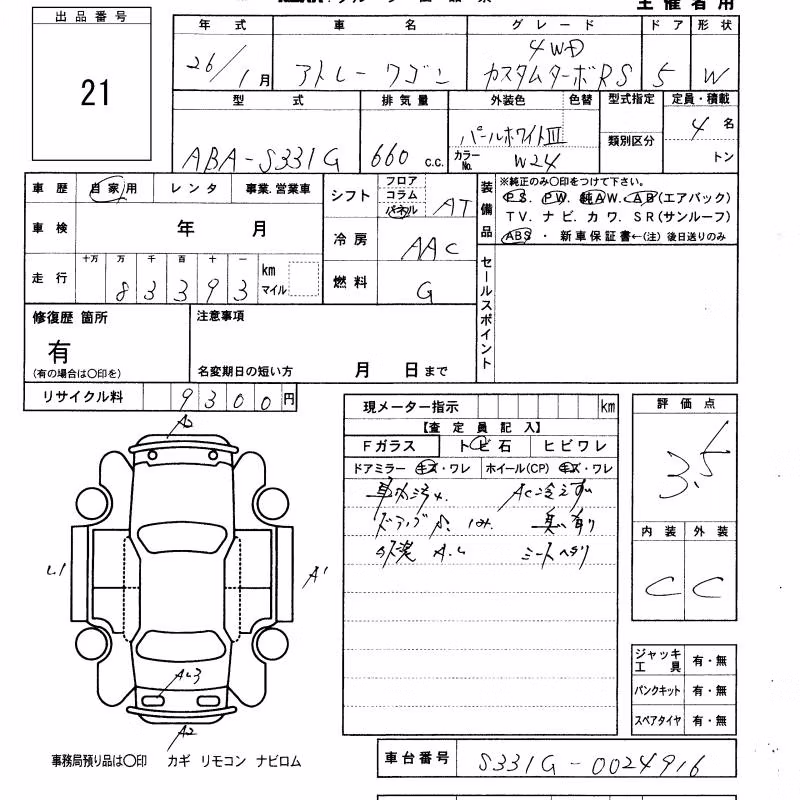 主催者用
出品番号
21
年式 車名 グレード ドア 形状
4WD
26/1月 アトレーワゴン カスタムターボRS 5 W
型式 排気量 外装色 色替 型式指定 定員・積載
パールホワイトIII 類別区分 4名
ABA-S331G 660 c.c. カラーNo. W24 トン
車歴 自家用 レンタ 事業.営業車
シフト フロア コラム パネル AT
装備品 ※純正のみ〇印をつけて下さい。
PS. PW. 純AW. AB(エアバック)
TV. ナビ. カワ. SR(サンルーフ)
ABS ・ 新車保証書←(注) 後日送りのみ
車検 年 月
冷房 AAC
走行 十万 万 千 百 十 一 km マイル
83393
燃料 G
セールスポイント
修復歴 箇所
有
(有の場合は〇印を)
注意事項
名変期日の短い方 月 日まで
リサイクル料 9300円
現メーター指示 km
【査定員記入】
Fガラス トビ石 ヒビワレ
ドアミラー キズ・ワレ ホイール(CP) キズ・ワレ
車内汚れ ACに冷えず
臭い有り
外装 A.U シートヘタリ
評価点
3.5
内装 外装
C C
A1
A2
ジャッキ工具 有・無
パンクキット 有・無
スペアタイヤ 有・無
事務局預り品は〇印 カギ リモコン ナビロム
車台番号 S331G-0024916